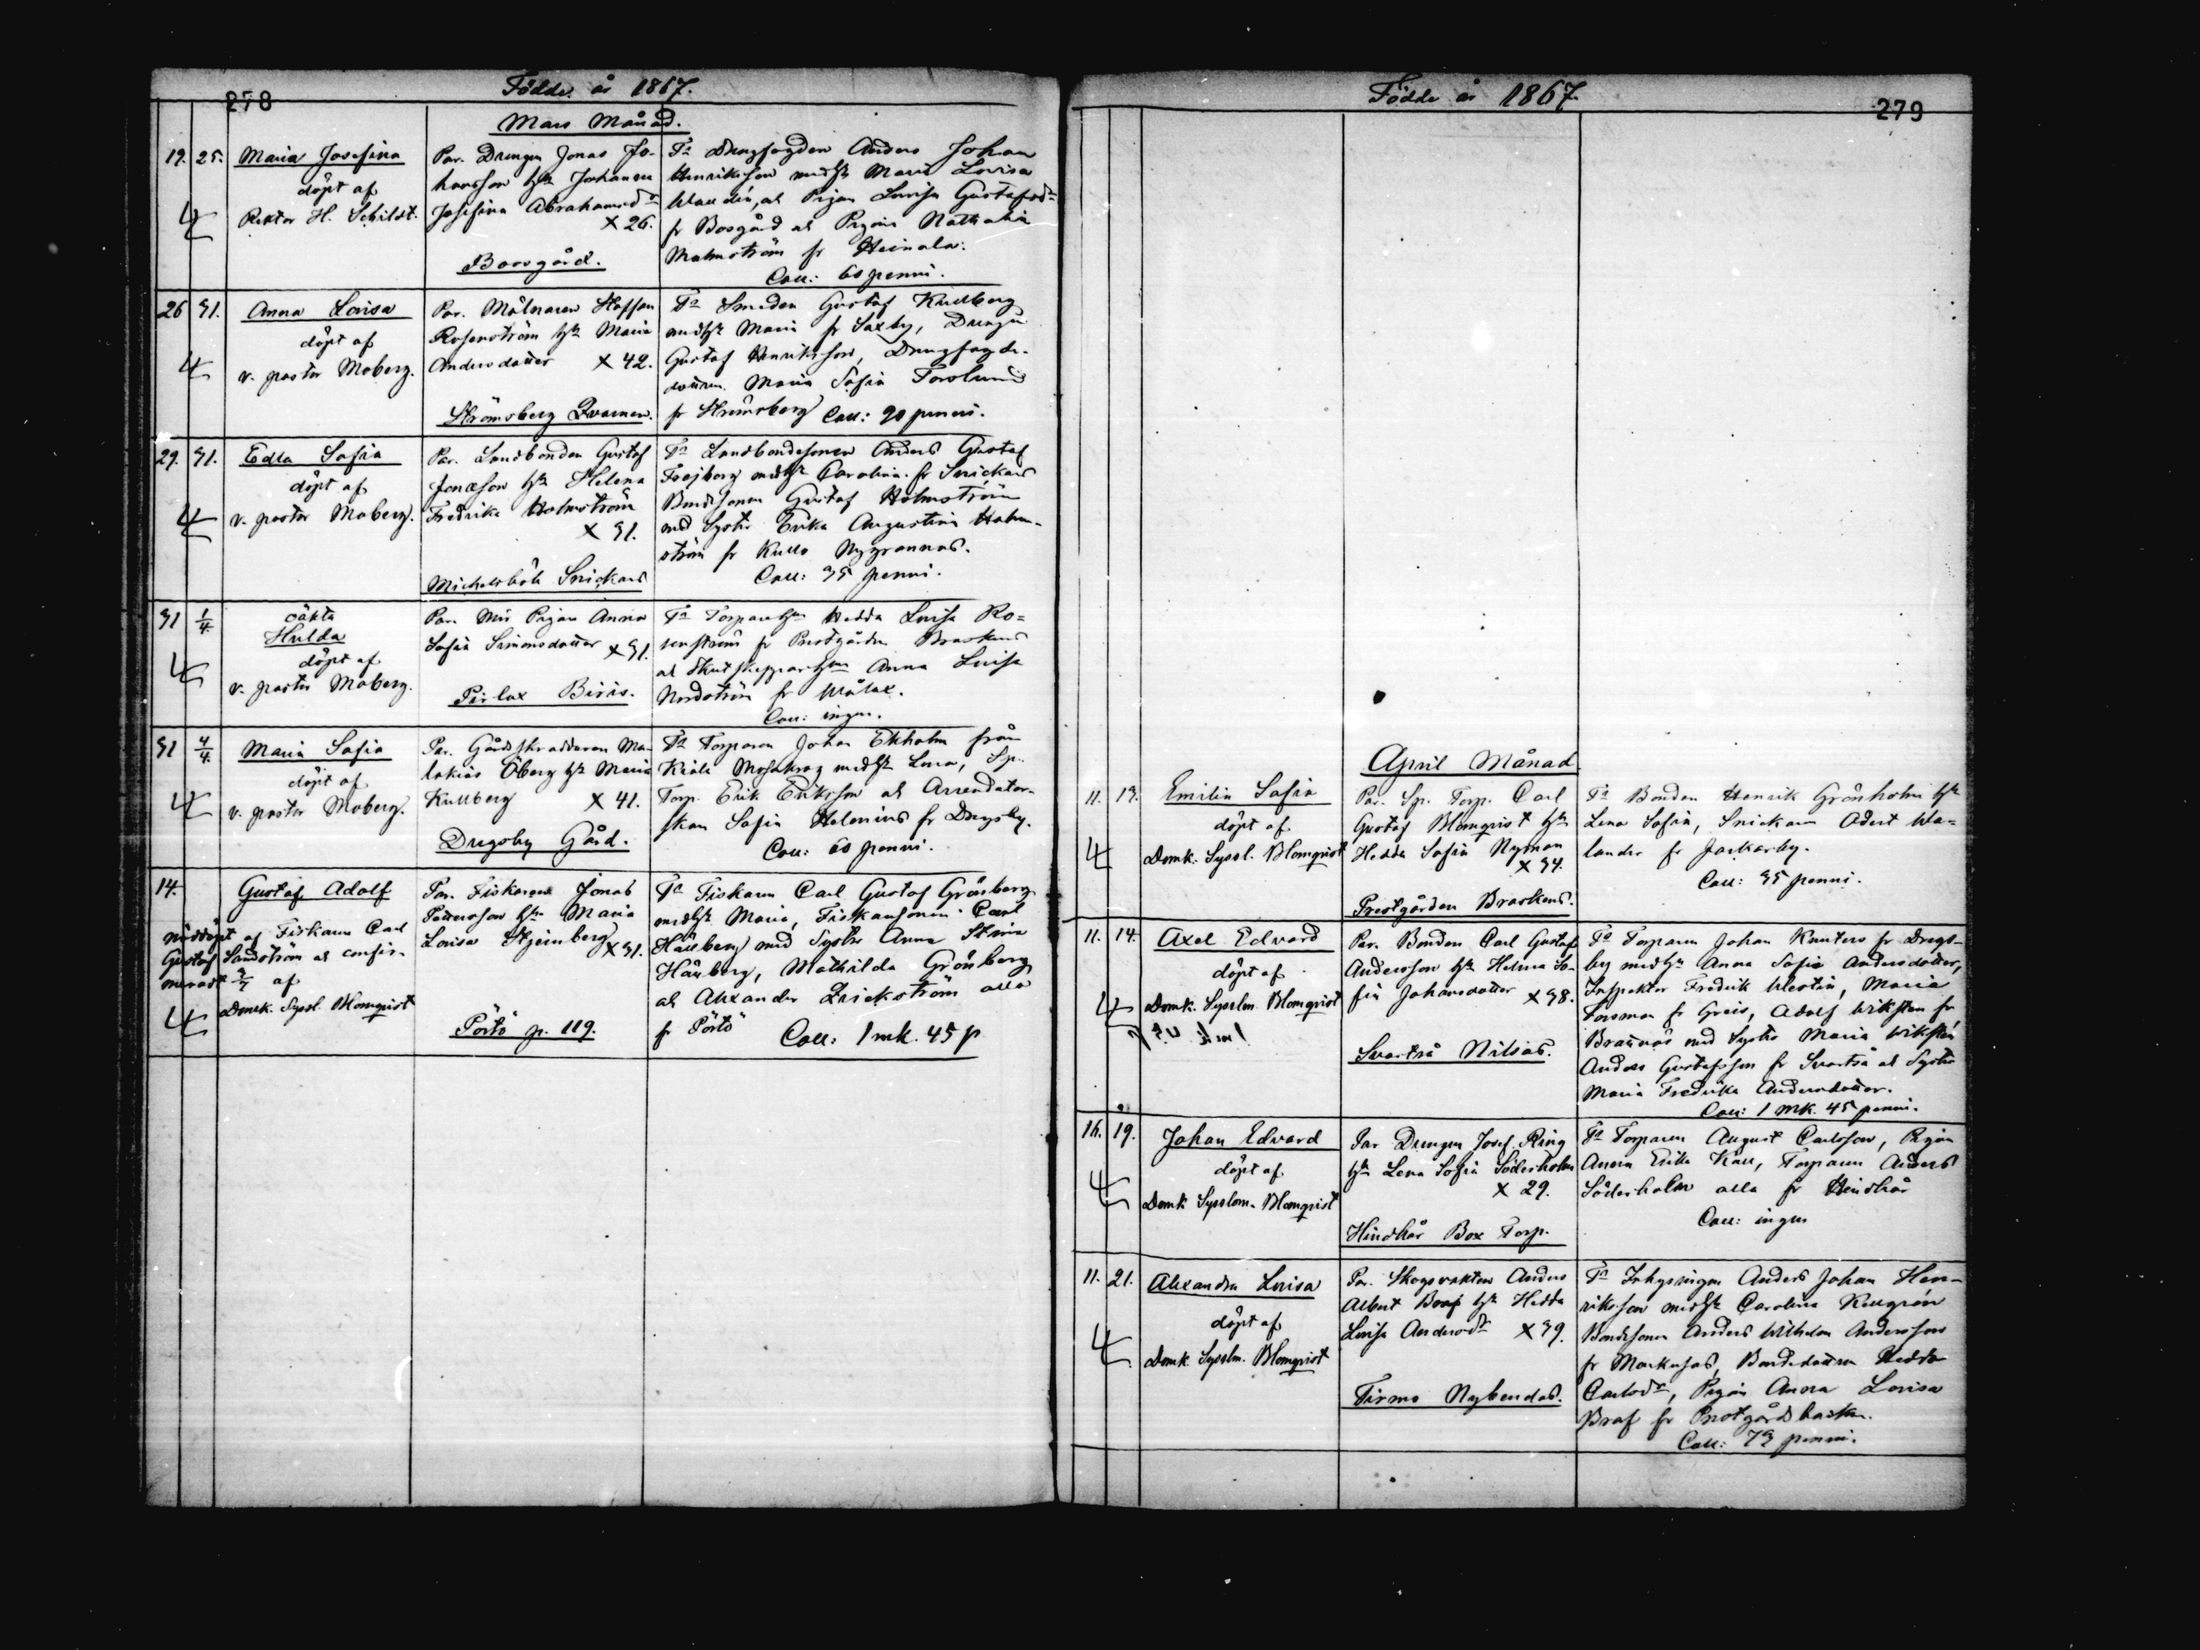 278
Födde år 1867.
Mars Månad.
19. 25. Maria Josefina
döpt af
Rektor H. Schildt.
Par. Drengen Jonas Jo-
hansson h:u Johanna
Josefina Abrahamsd:r
X 26.
Bosgård.
F:a Drengfogden Anders Johan
Henriksson med h:u Maria Lovisa
och Pigan Lovisa Gustafsd:r
fr Bosgård och Pigan Nathalia
Malmström fr Heinala.
Coll: 60 penni.
26 31. Anna Lovisa
döpt af
v. pastor Moberg.
Par. Mölnaren Staffan
Rosenström h:u Maria
Andersdotter X 42.
Strömsberg Qvarnen.
F:a Smeden Gustaf Kullberg
med h:u Maria fr Saxby, Drengen
Gustaf Henriksson, Drengfogde-
dottren Maria Sofia Forslund
fr Strömsberg Coll: 90 penni.
29. 31. Edla Sofia
döpt af
v. pastor Moberg.
Par. Landbonden Gustaf
Jonasson h:u Helena
Fredrika Holmström
X 31.
Michelsböle Snickars
F:a Landbondesonen Anders Gustaf
Frejborg med h:u Carolina fr Snickars
Bondesonen Gustaf Holmström
med Syster Erika Augustina Holm-
ström fr Kullo Nygrannas.
Coll: 35 penni.
31 1/4. oäkta
Hulda
döpt af
v. pastor Moberg.
Par. Mör Pigan Anna
Sofia Simonsdotter X 31.
Pirlax Biris.
F:a Torpareh:un Hedda Lovisa Ro-
senström fr Prestgården Braskens
och Skutskepparh:un Anna Lovisa
Nordström fr Wålax.
Coll: ingen.
31 4/4. Maria Sofia
döpt af
v. pastor Moberg.
Par. Gårdsskräddaren Ma-
lakias Öberg h:u Maria
Kullberg X 41.
Drägsby Gård.
F:a Torparen Johan Ekholm från
Kiala Mosakrog med h:u Lena, Sp.
Torp. Erik Eriksson och Arrendator-
skan Sofia Helenius fr Drägsby.
Coll: 60 penni.
14. Gustaf Adolf
nöddöpt af Fiskaren Carl
Gustaf Sandström och confir-
meradt 3/7 af
Domk. Syssl. Blomqvist
Par. Fiskaren Jonas
Pettersson h:u Maria
Lovisa Stjernberg X 31.
Pörtö p. 119.
F:a Fiskaren Carl Gustaf Grönberg
med h:u Maria, Fiskaresonen Carl
Hallberg med Syster Anna Stina
Hallberg, Mathilda Grönberg
och Alexander Qvickström alla
fr Pörtö Coll: 1 mk. 45 p
Födde år 1867.
279
April Månad.
11. 13. Emilia Sofia
döpt af
Domk. Syssl. Blomqvist
Par. Sp. Torp. Carl
Gustaf Blomqvist h:u
Hedda Sofia Nyman
X 34.
Prestgården Braskens.
F:a Bonden Henrik Grönholm h:u
Lena Sofia, Snickaren Adert Wa-
lander fr Jackarby.
Coll: 35 penni.
11. 14. Axel Edvard
döpt af
Domk. Sysslm. Blomqvist
Par. Bonden Carl Gustaf
Andersson h:u Helena So-
fia Johansdotter X 38.
Svartså Nilsas.
F:a Torparen Johan Knuters fr Drägs-
by med h:u Anna Sofia Andersdotter,
Inspektor Fredrik Westin, Maria
Forsman fr Greis, Adolf Wiksten fr
Brattnäs med Syster Maria Wiksten
Anders Gustafsson fr Svartså och Syster
Maria Fredrika Andersdotter.
Coll: 1 mk. 45 penni.
16. 19. Johan Edvard
döpt af
Domk. Sysslom. Blomqvist
Par Drengen Josef Ring
h:u Lena Sofia Söderholm
X 29.
Hindhår Box Torp.
F:a Torparen August Carlsson, Pigan
Anna Erika Käll, Torparen Anders
Söderholm alla fr Hindhår
Coll: ingen
11. 21. Alexandra Lovisa
döpt af
Domk. Sysslm. Blomqvist
Par. Skogsvaktaren Anders
Albert Braf h:u Hedda
Lovisa Andersd:r X 39.
Tirmo Nybondas.
F:a Inhysingen Anders Johan Hen-
riksson med h:u Carolina Kullgrén
Bondesonen Anders Wilhelm Andersson
fr Markusas, Bondedottren Hedda
Carlsd:r, Pigan Anna Lovisa
Braf fr Prestgårdsbacken.
Coll: 73 penni.